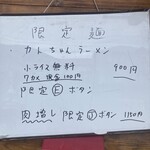 限定麺
・カトちゃんラーメン
小ライス無料
900円
ワカメ 現金100円
限定 E ボタン
肉増し 限定 J ボタン 1150円